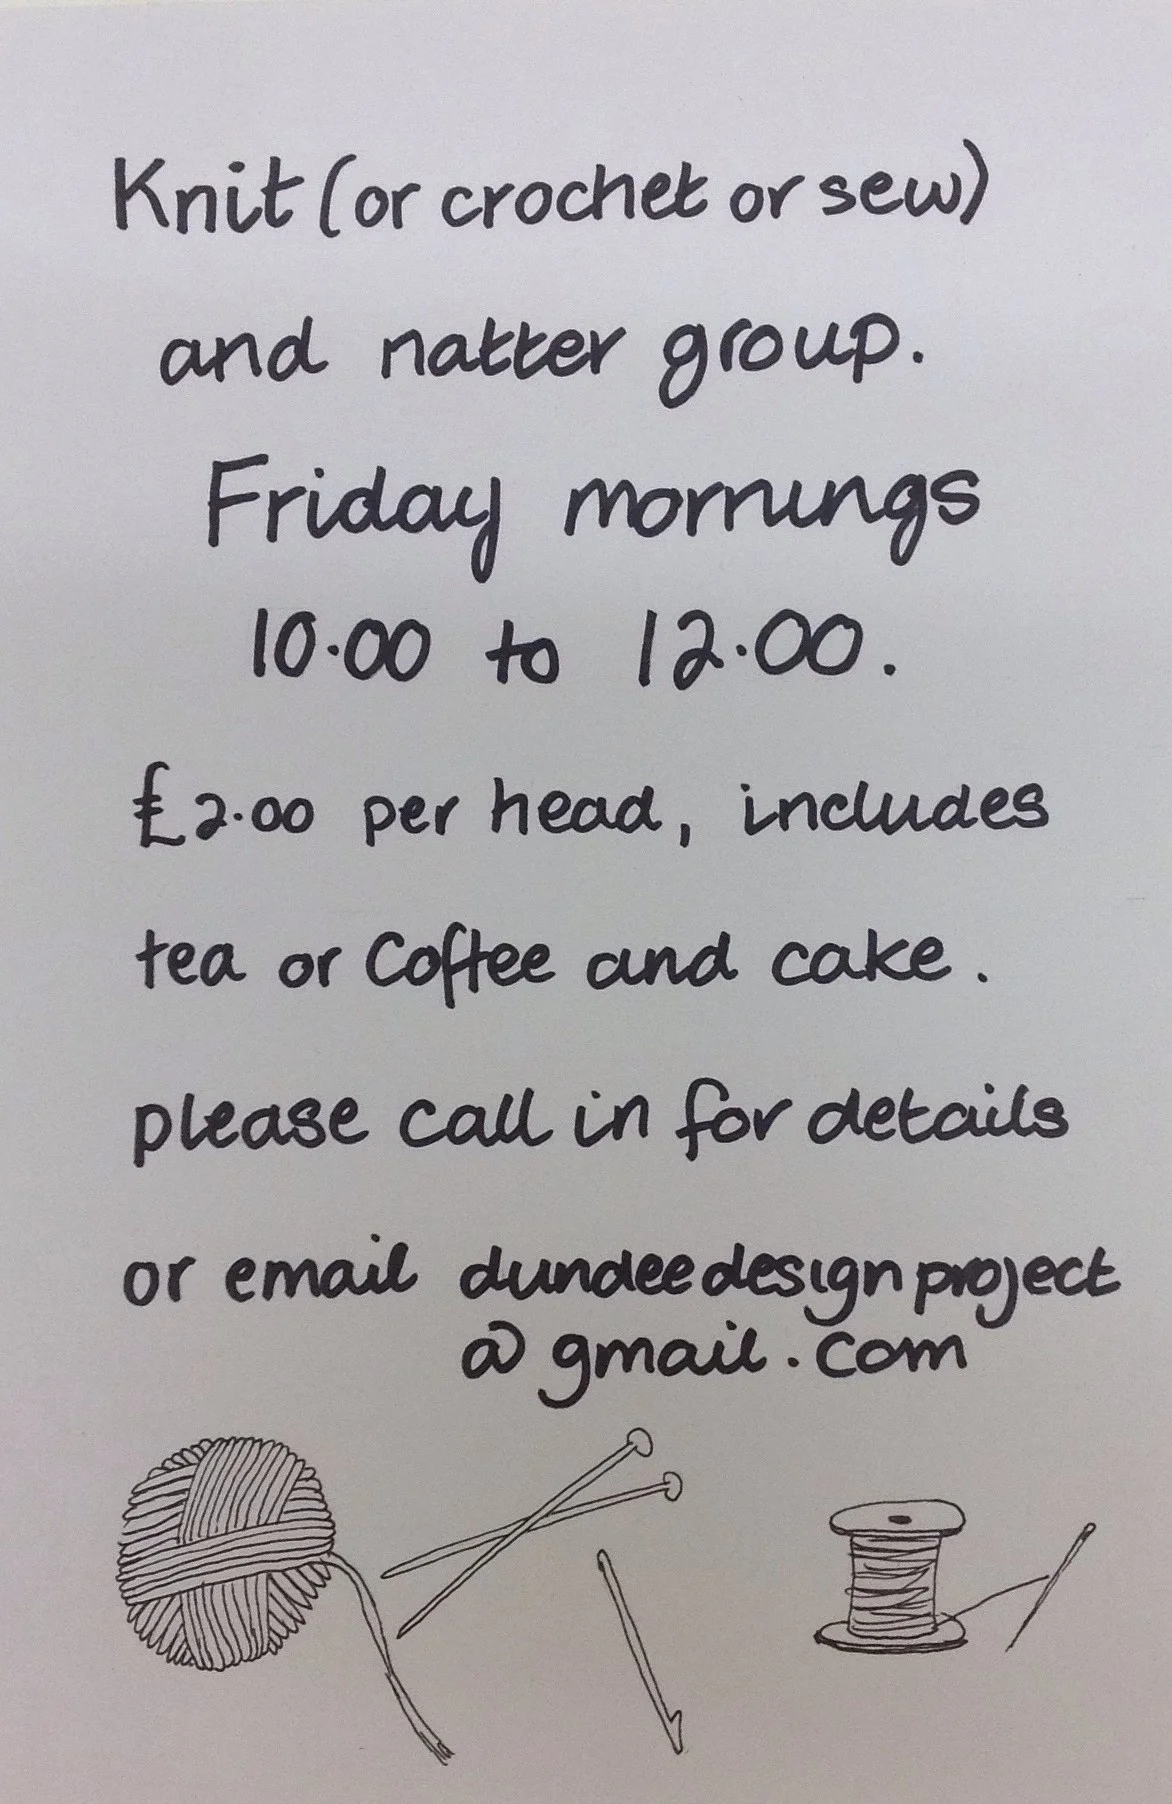 Knit (or crochet or sew)
and natter group.
Friday mornings
10.00 to 12.00.
£2.00 per head, includes
tea or Coffee and cake.
please call in for details
or email dundeedesignproject
@gmail.com